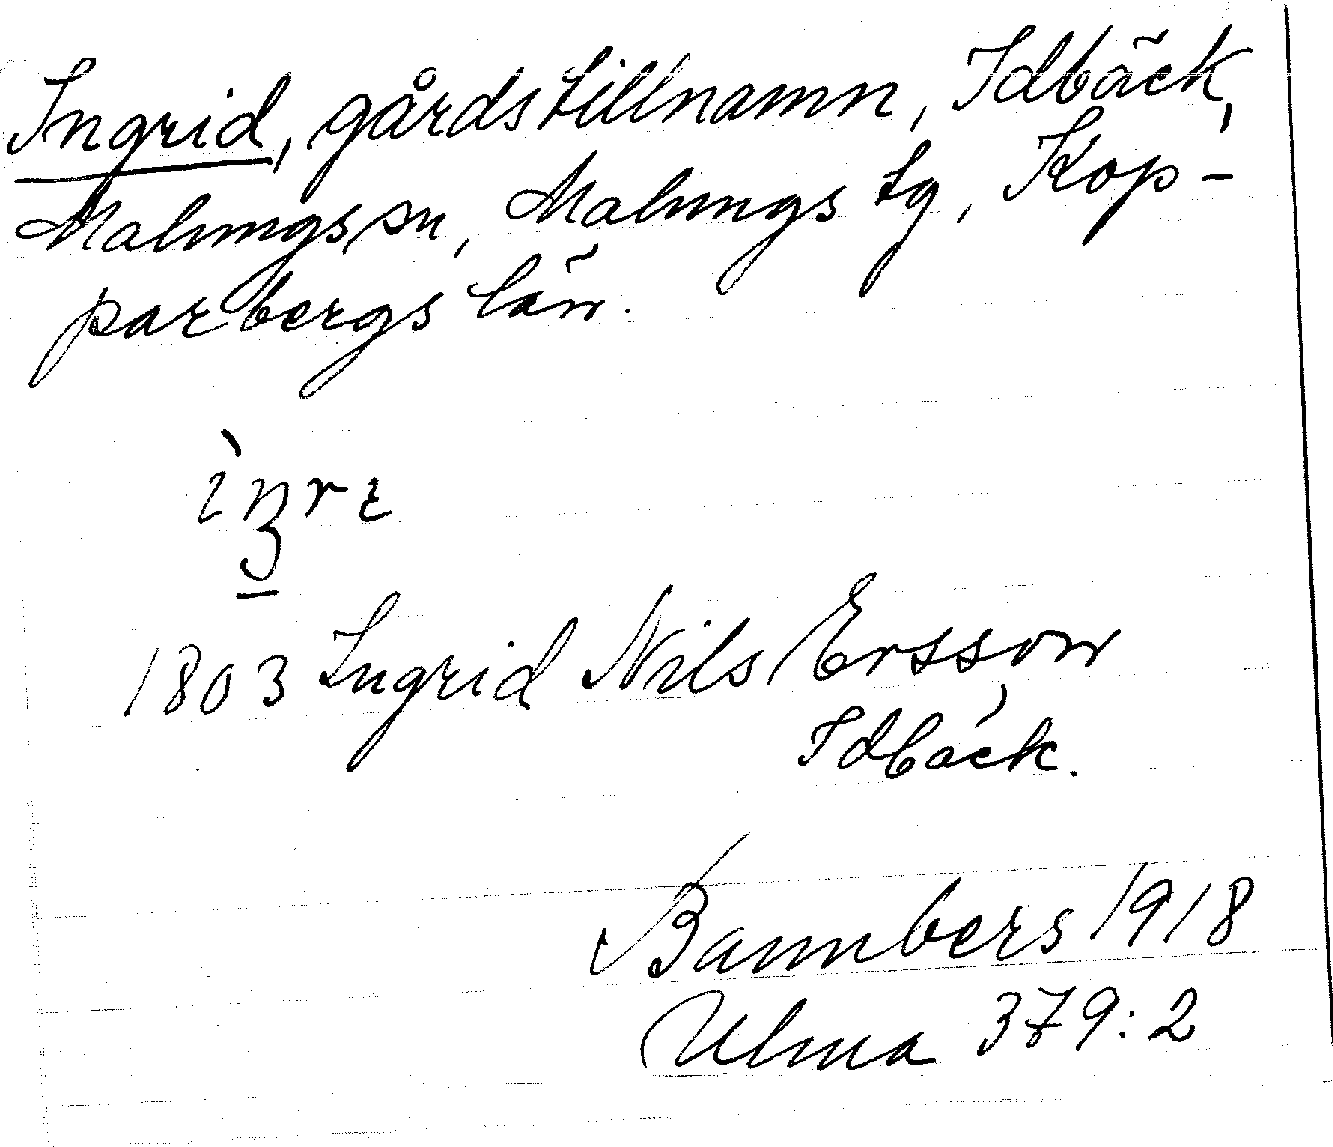 Ingrid, gårdstillnamn, Idbäck,
Malungs sn, Malungs tg, Kop-
parbergs län.
1803 Ingrid Nils Ersson,
Idbäck.
Bannbers 1918
Ulma 379:2